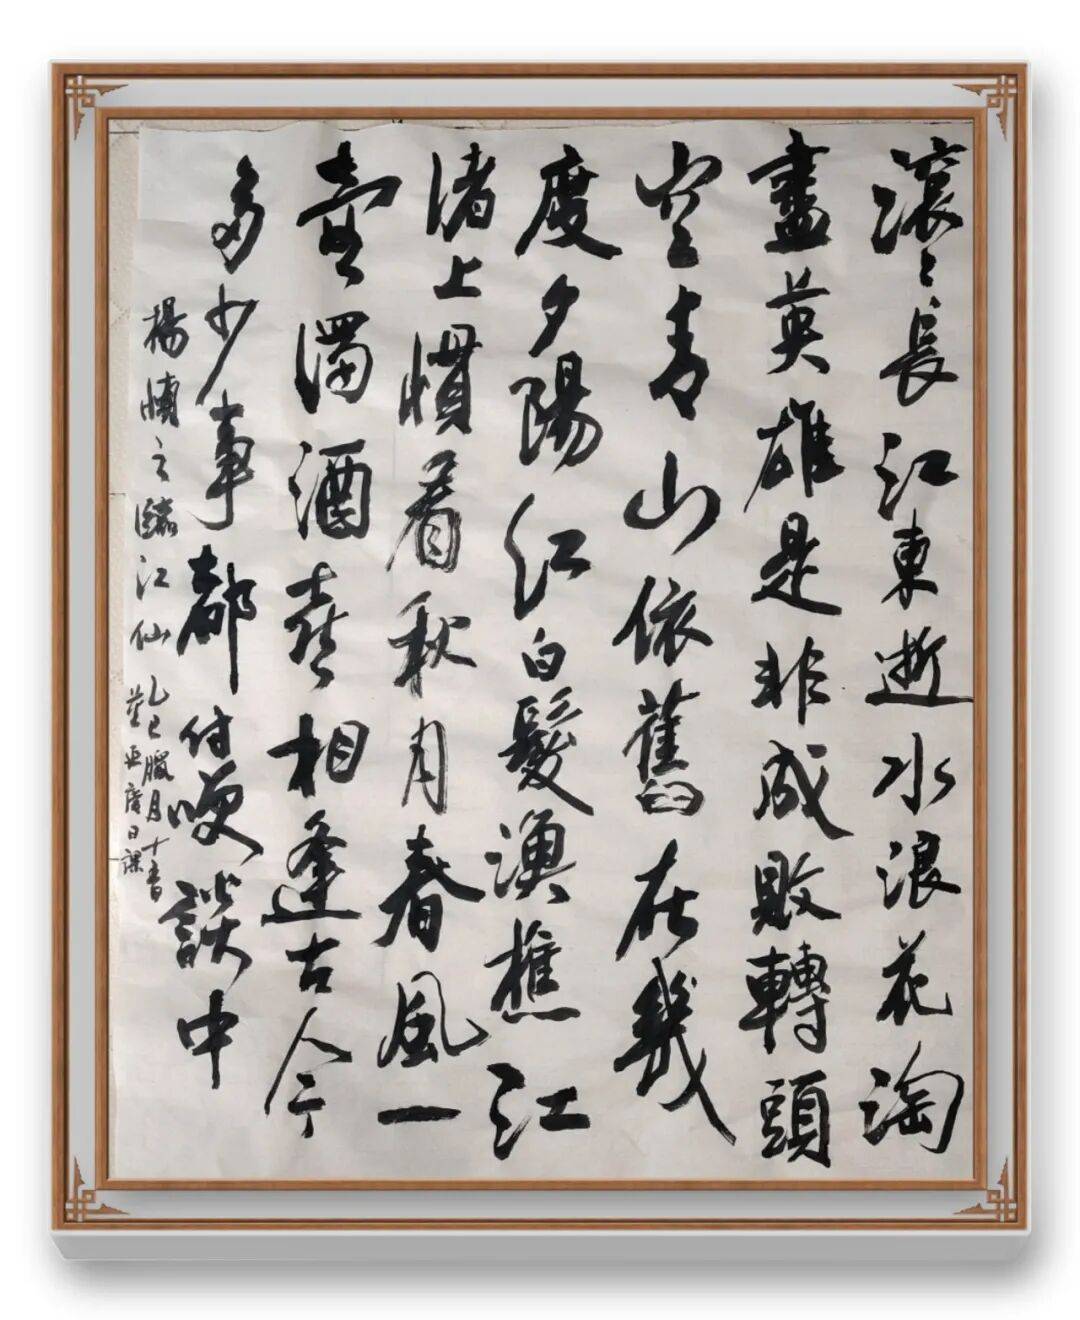 滚〻長江東逝水浪花淘
盡英雄是非成敗轉頭
空青山依舊在幾
度夕陽紅白髮漁樵江
渚上慣看秋月春風一
壺濁酒喜相逢古今
多少事都付咲談中
楊慎之臨江仙
乙巳臘月十書
日課